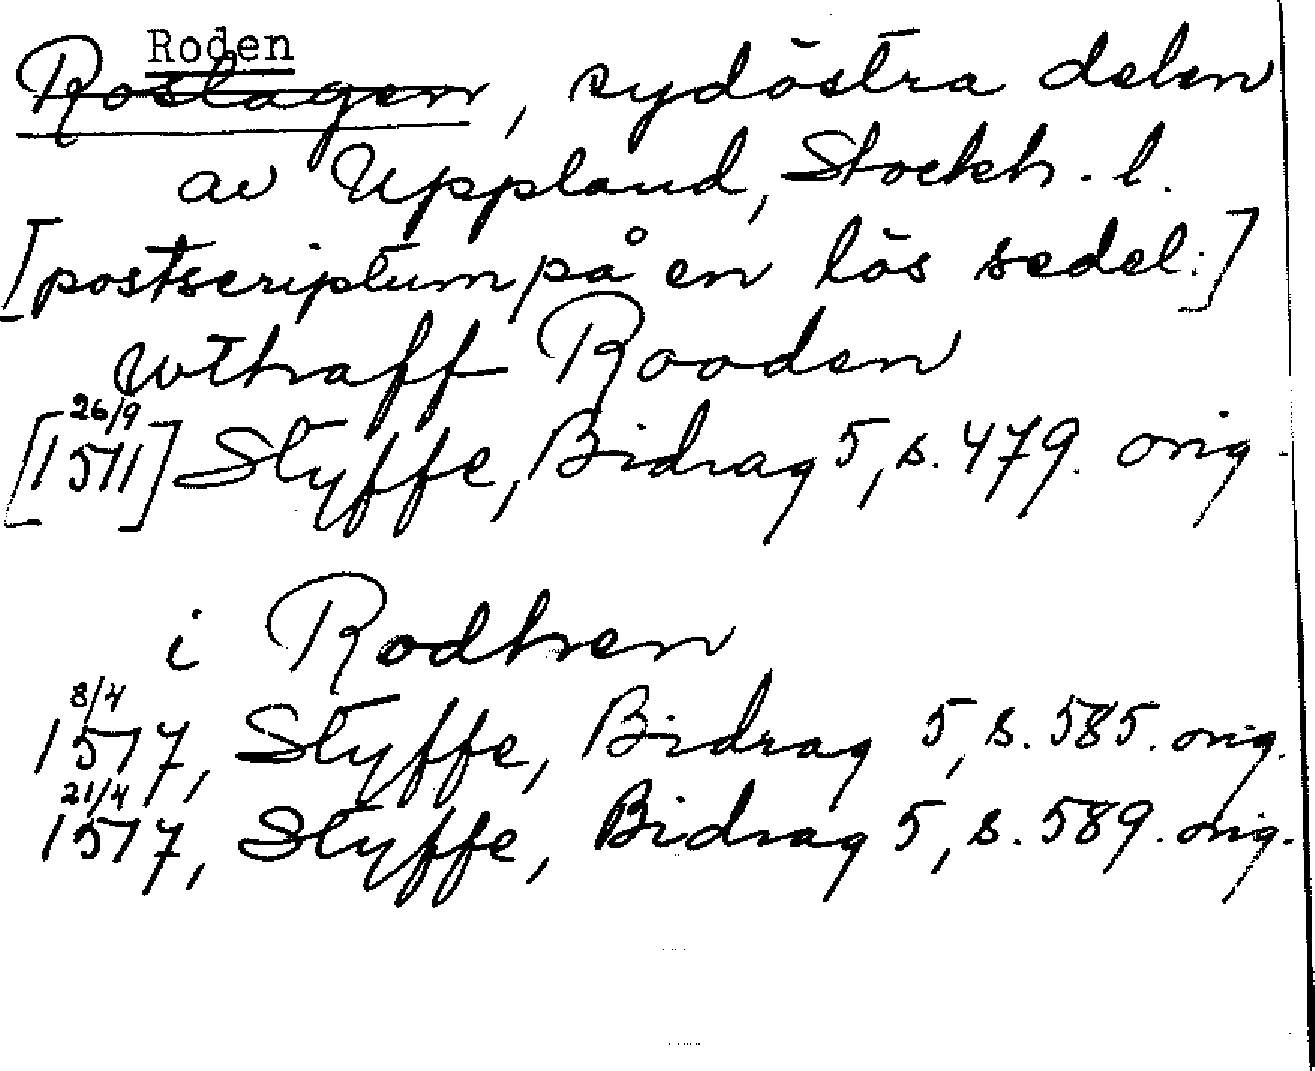 Roden
Roslagen, sydöstra delen
av Uppland, Stockh. l.
[postscriptum på en lös sedel:]
wthaff Rooden
26/9
[1511] Styffe, Bidrag 5, s. 479. orig
i Rodhen
8/4
1517, Styffe, Bidrag 5, s. 585. orig.
21/4
1517, Styffe, Bidrag 5, s. 589. orig.